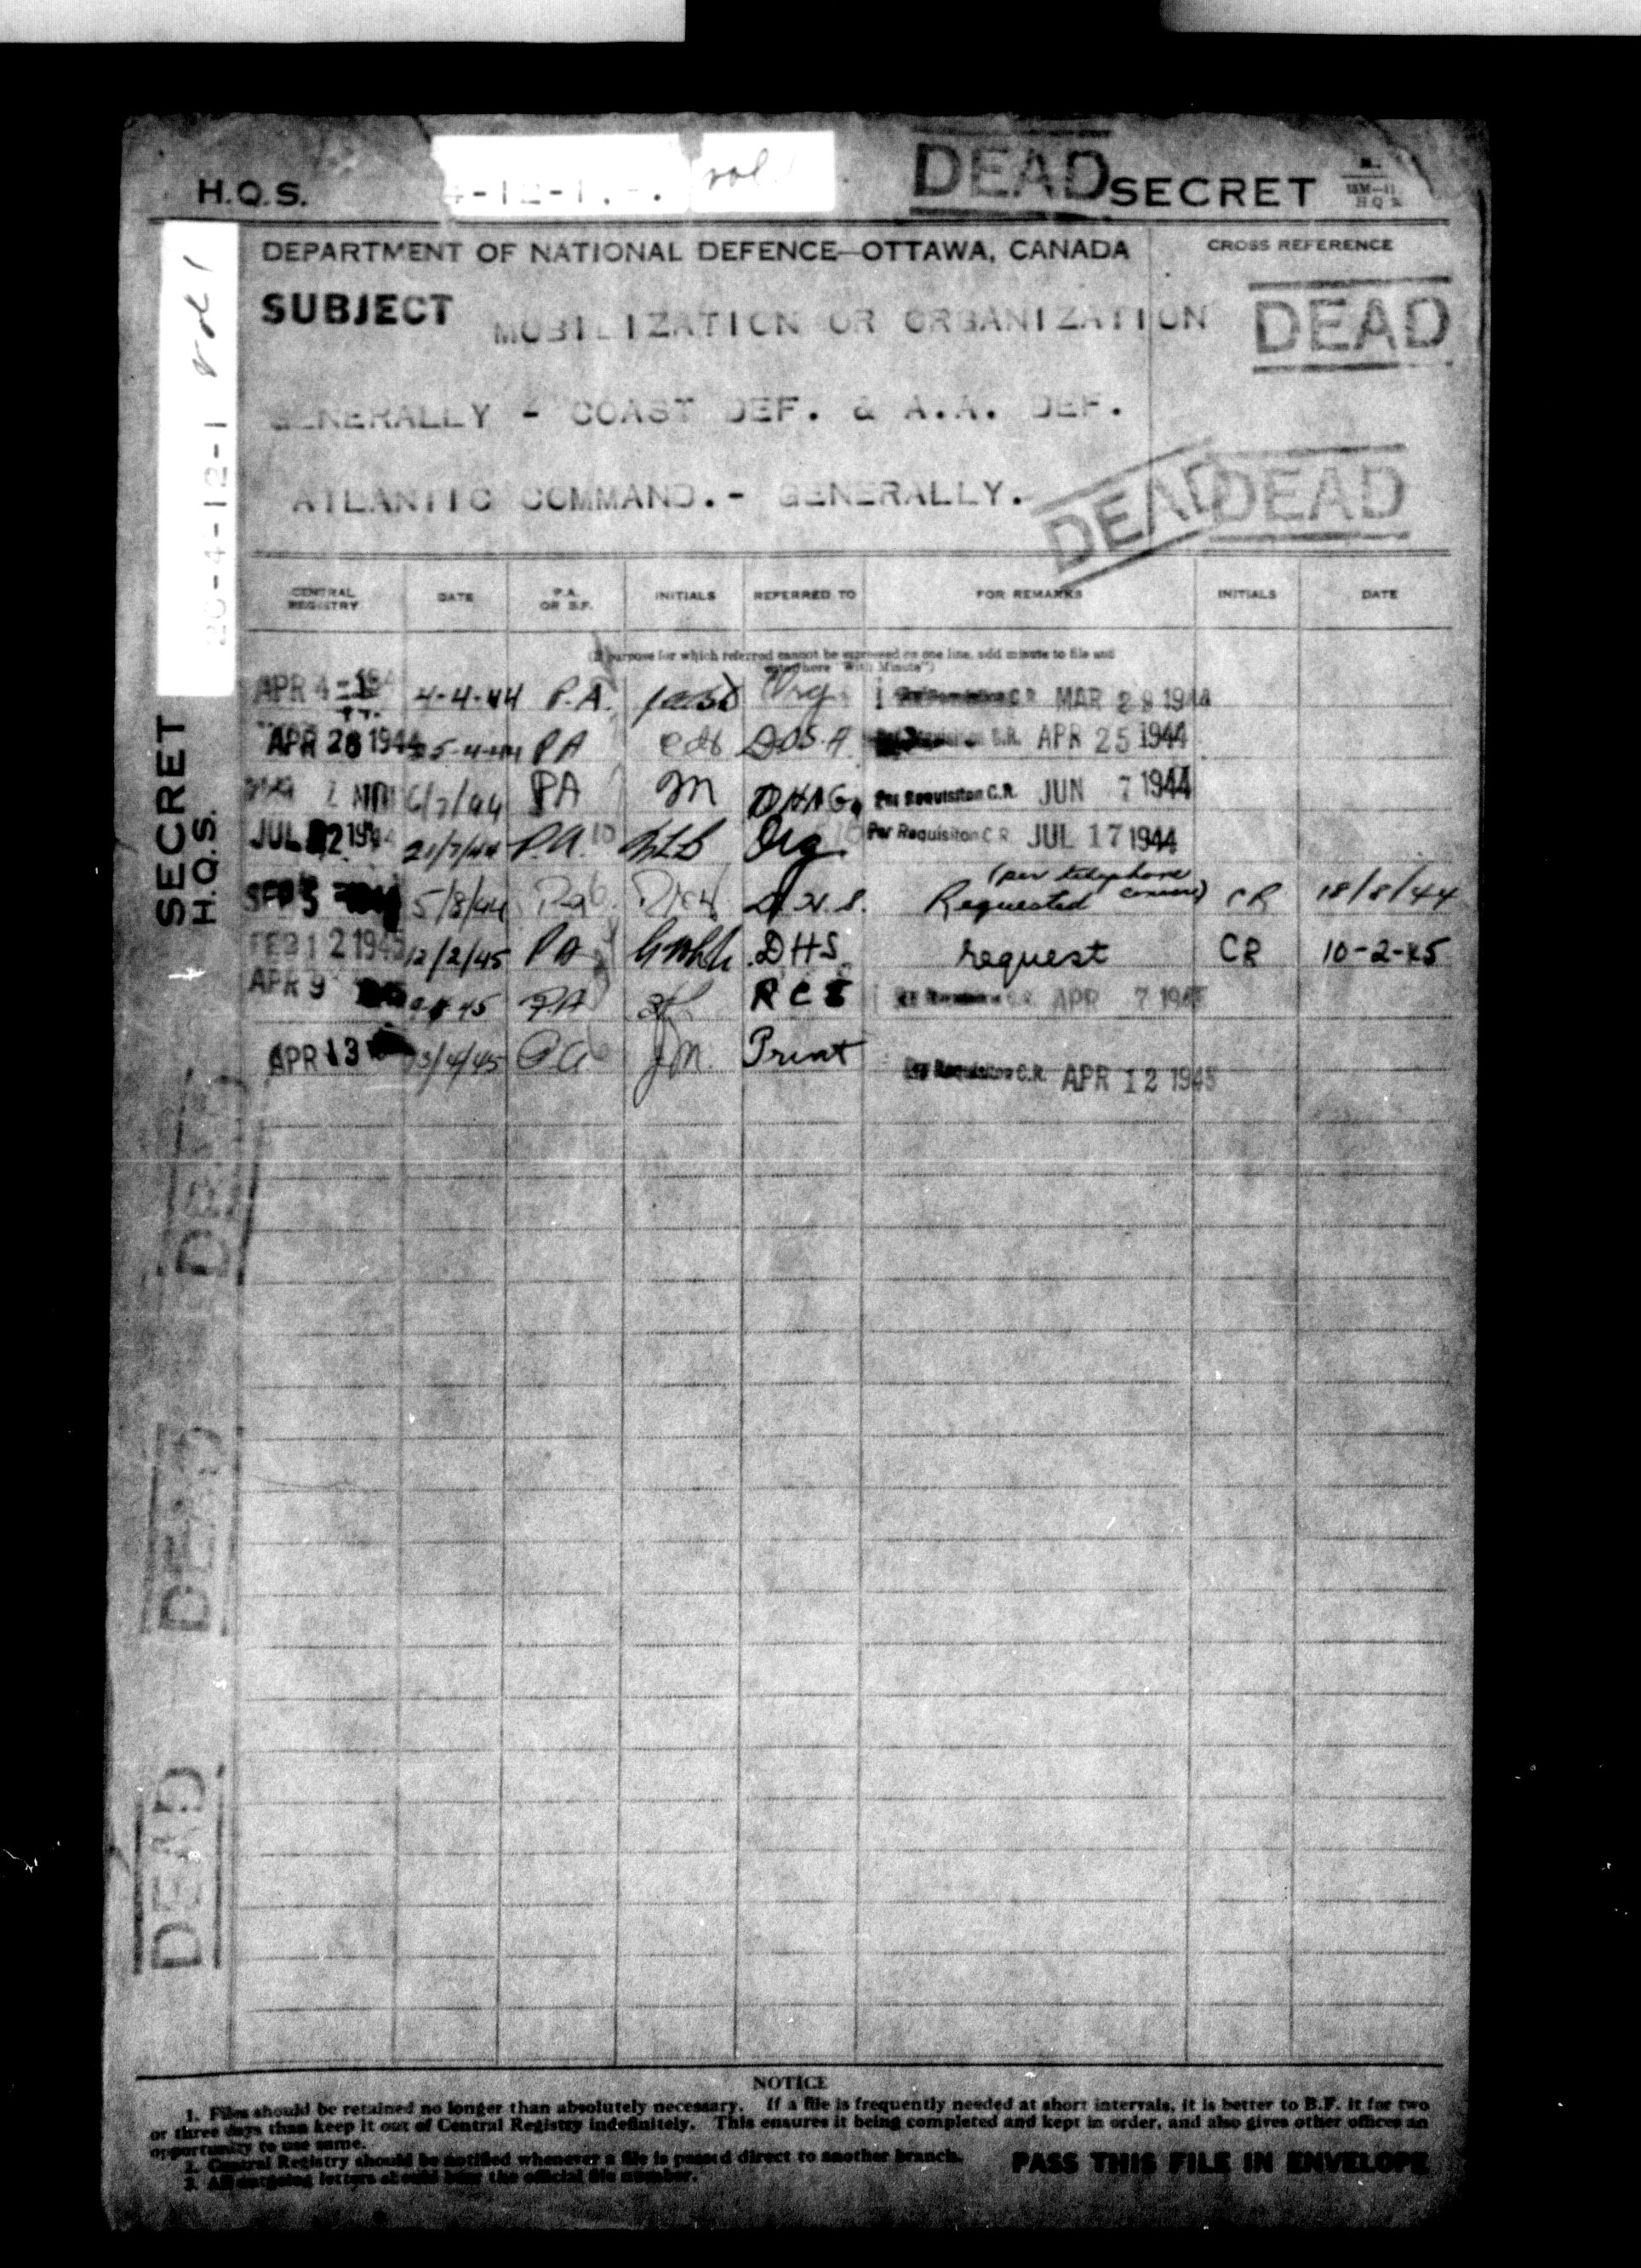 H.Q.S. 4-12-1 vol DEAD SECRET
DEPARTMENT OF NATIONAL DEFENCE—OTTAWA, CANADA
CROSS REFERENCE
SUBJECT MOBILIZATION OR ORGANIZATION
DEAD
GENERALLY - COAST DEF. & A.A. DEF.
ATLANTIC COMMAND.- GENERALLY.
DEAD DEAD
vol 1
20-4-12-1
SECRET
H.Q.S.
CENTRAL REGISTRY DATE P.A. OR B.F. INITIALS REFERRED TO FOR REMARKS INITIALS DATE
(If purpose for which referred cannot be expressed on one line, add minute to file and
enter here "With Minute")
APR 4 4-4-44 P.A. Org MAR 29 1944
APR 26 1944 25-4-44 PA edb C.R. APR 25 1944
6/7/44 PA M Per Requisition C.R. JUN 7 1944
JUL 22 1944 21/7/44 P.A. Org Per Requisition C.R. JUL 17 1944
SEP 5 5/8/44 D.H.S. Requested (per telephone CR 18/8/44
FEB 12 1945 12/2/45 PA DHS request CR 10-2-45
APR 9 P.A APR 7 1945
APR 13 13/4/45 PA J.M. Print Per Requisition C.R. APR 12 1945
DEAD
DEAD
DEAD
NOTICE
1. Files should be retained no longer than absolutely necessary. If a file is frequently needed at short intervals, it is better to B.F. it for two
or three days than keep it out of Central Registry indefinitely. This ensures it being completed and kept in order, and also gives other offices an
opportunity to use same.
2. Central Registry should be notified whenever a file is passed direct to another branch.
3. All outgoing letters should bear the official file number.
PASS THIS FILE IN ENVELOPE